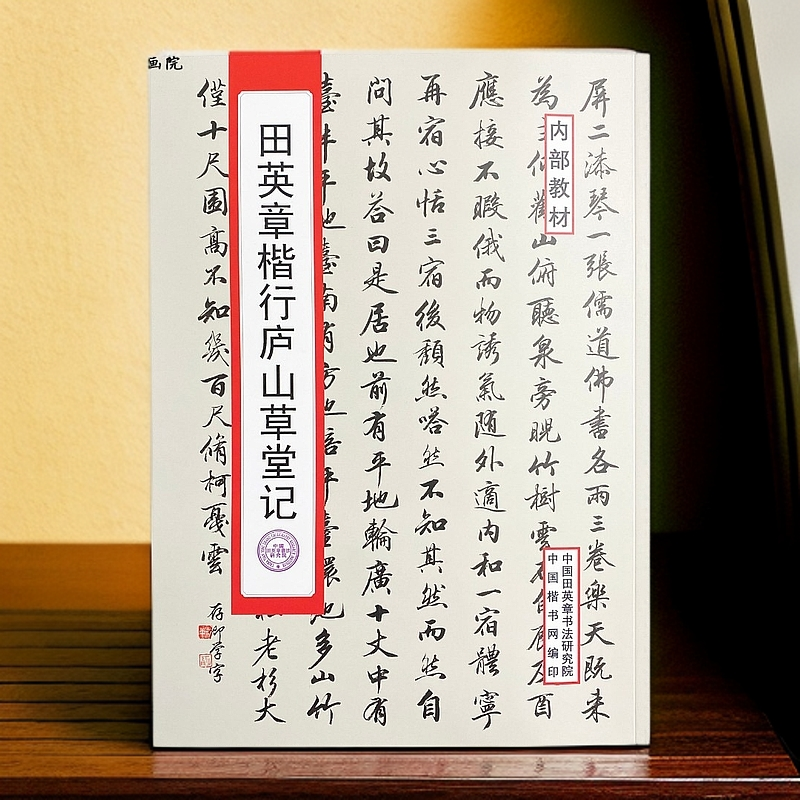 屏二漆琴一張儒道佛書各兩三卷樂天既来
為主仰觀山俯聽泉旁睨竹樹雲石自辰及酉
應接不暇俄而物誘氣随外適内和一宿體寧
再宿心恬三宿後頹然嗒然不知其然而然自
問其故答曰是居也前有平地輪廣十丈中有
臺半平地臺南有方池倍平臺環池多山竹
老杉大
僅十尺圍高不知幾百尺脩柯戛雲
内部教材
田英章楷行庐山草堂记
中国田英章书法研究院
中国楷书网编印
画院